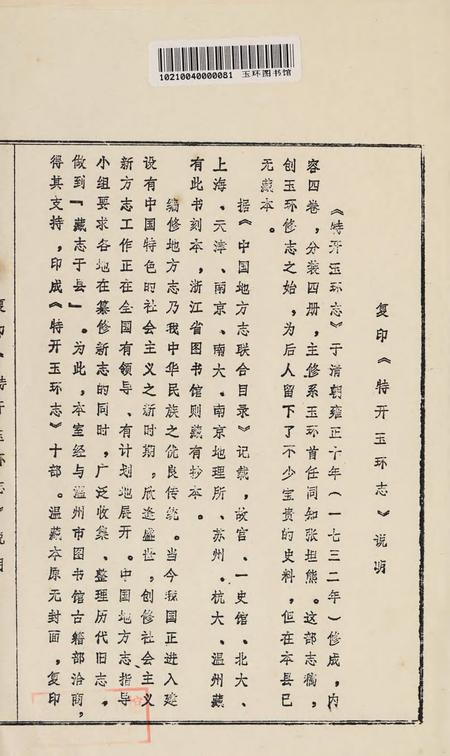 10210040000081 玉环图书馆
复印《特开玉环志》说明
《特开玉环志》于清朝雍正十年(一七三二年)修成,内
容四卷,分装四册,主修系玉环首任同知张坦熊。这部志稿,
创玉环修志之始,为后人留下了不少宝贵的史料,但在本县已
无藏本。
据《中国地方志联合目录》记载,故宫、一史馆、北大、
上海、天津、南京、南大、南京地理所、苏州、杭大、温州藏
有此书刻本,浙江省图书馆则藏有抄本。
编修地方志乃我中华民族之优良传统。当今我国正进入建
设有中国特色的社会主义之新时期,欣逢盛世,创修社会主义
新方志工作正在全国有领导、有计划地展开。中国地方志指导
小组要求各地在纂修新志的同时,广泛收集、整理历代旧志。
做到『藏志于县』。为此,本室经与温州市图书馆古籍部洽商,
得其支持,印成《特开玉环志》十部。温藏本原无封面,复印
复印《特开玉环志》说明